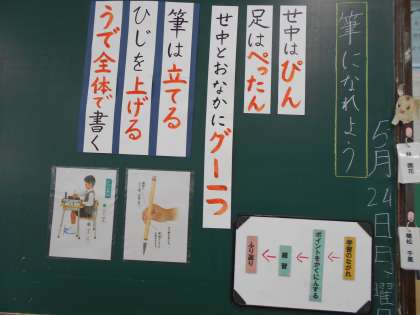 5月24日日曜日
筆になれよう
せ中はぴん
足はぺったん
せ中とおなかにグー一つ
筆は立てる
ひじを上げる
うで全体で書く
学習のながれ
ポイントをかくにんする
練習
ふり返り